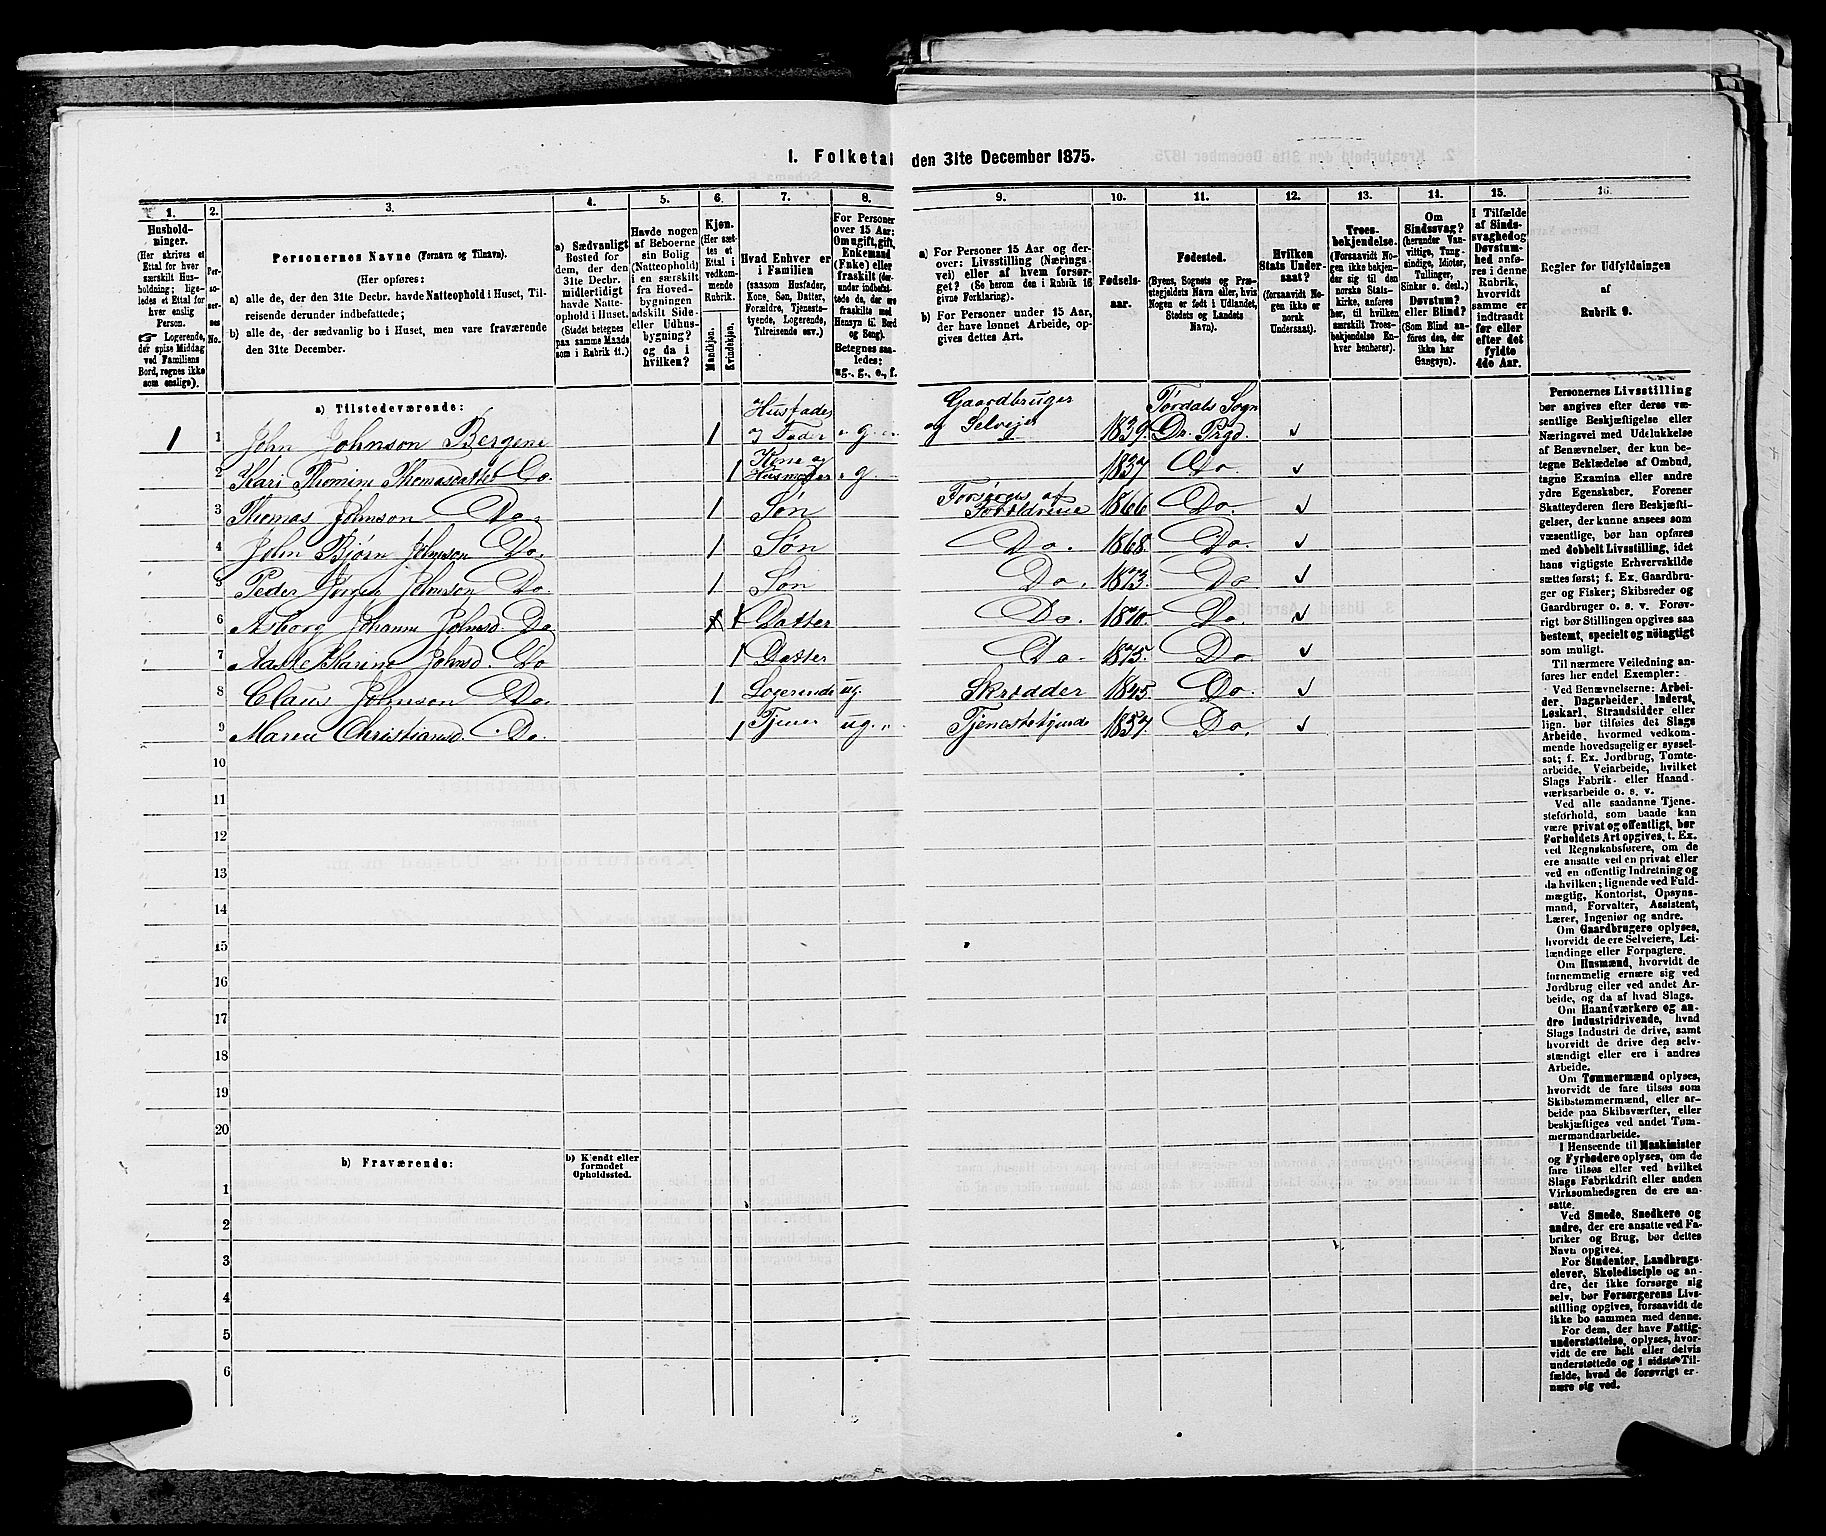 I. Folketal den 31te December 1875.
1. 2. 3. 4. 5. 6. 7. 8. 9. 10. 11. 12. 13. 14. 15. 16.
Husholdninger.
(Her skrives et
Ettal for hver
særskilt Husholdning;
ligeledes
et Ettal for
hver enslig
Person.
Logerende,
der spise Middag
ved Familiens
Bord, regnes ikke
som enslige).
Personernes No.
Personernes Navne (Fornavn og Tilnavn).
(Her opføres:
a) alle de, der den 31te Decbr. havde Natteophold i Huset, Tilreisende
derunder indbefattede;
b) alle de, der sædvanlig bo i Huset, men vare fraværende
den 31te December.
a) Sædvanligt
Bosted for
dem, der den
31te Decbr.
midlertidigt
havde Natteophold
i Huset.
(Stedet betegnes
paa samme Maade
som i Rubrik 11.)
Havde nogen
af Beboerne
sin Bolig
(Natteophold)
i en særskilt
fra Hovedbygningen
adskilt Side-
eller Udhusbygning?
og da i
hvilken?
Kjøn.
(Her sættes
et
Ettal i
vedkommende
Rubrik.
Mandkjøn.
Kvindekjøn.
Hvad Enhver er
i Familien
(saasom Husfader,
Kone, Søn, Datter,
Forældre, Tjenestetyende,
Logerende,
Tilreisende osv.)
For Personer
over 15 Aar:
Om ugift, gift,
Enkemand
(Enke) eller
fraskilt
Betegnes saaledes:
ug., g., e., f.
a) For Personer 15 Aar og derover:
Livsstilling (Næringsvei)
eller af hvem forsørget?
(Se herom den i Rubrik 16
givne Forklaring).
b) For Personer under 15 Aar,
der have lønnet Arbeide, opgives
dettes Art.
Fødselsaar.
Fødested.
(Byens, Sognets og Præstegjeldets
Navn eller, hvis
Nogen er født i Udlandet,
Stedets og Landets
Navn).
Hvilken
Stats Undersaat?
(forsaavidt Nogen
ikke er
norsk
Undersaat).
Troesbekjendelse.
(Forsaavidt Nogen
ikke bekjender
sig til den
norske Statskirke,
anføres
her, til hvilken
særskilt Troesbekjendelse
Enhver
henhører).
Om
Sindssvag?
(herunder Vanvittige,
Tungsindige,
Idioter,
Tullinger,
Sinker o. desl.)
Døvstum?
eller Blind?
(Som Blind anføres
den, der
ikke har
Gangsyn).
I Tilfælde
af Sindssvaghed
og
Døvstumhed
anføres
i denne
Rubrik,
hvorvidt
samme er
indtraadt
før eller
efter det
fyldte
4de Aar.
Regler for Udfyldningen
af
Rubrik 9.
a) Tilstedeværende:
1 1 John Johnson Bergene 1 Husfader og Fader g. Gaardbruger og Selveier 1839. Tørdals Sogn Dr. Prgd.
2 Kari Thomine Thomasdatter Do. 1 Kone og Husmoder g 1837 Do.
3 Thomas Johnson Do. 1 Søn Forsørges af Forældrene 1866 Do.
4 John Bjørn Johnson Do. 1 Søn Do. 1868. Do.
5 Peder Jørgen Johnson Do. 1 Søn Do. 1873. Do
6 Asborg Johanne Johnsd. Do 1 Datter Do. 1870. Do.
7 Aaste Karine Johnsd. Do 1 Datter Do. 1875. Do.
8 Claus Johnson Do. 1 Logerende ug. Skrædder 1845. Do.
9 Maren Christiansd. Do. 1 Tjener ug. Tjenestetyende 1857. Do.
10
11
12
13
14
15
16
17
18
19
20
b) Fraværende:
b) Kjendt eller
formodet
Opholdssted.
1
2
3
4
5
6
Personernes Livsstilling
bør angives efter deres væsentlige
Beskjæftigelse eller
Næringsvei med Udelukkelse
af Benævnelser, der kun betegne
Beklædelse af Ombud,
tagne Examina eller andre
ydre Egenskaber. Forener
Skatteyderen flere Beskjæftigelser,
der kunne ansees som
væsentlige, bør han opføres
med dobbelt Livsstilling, idet
hans vigtigste Erhvervskilde
sættes først; f. Ex. Gaardbruger
og Fisker; Skibsreder og
Gaardbruger o. s. v. Forøvrigt
bør Stillingen opgives saa
bestemt, specielt og nöiagtigt
som muligt.
Til nærmere Veiledning anføres
her endel Exempler:
Ved Benævnelserne: Arbeider,
Dagarbeider, Inderst,
Løskarl, Strandsidder eller
lign. bør tilføies det Slags
Arbeide, hvormed vedkommende
hovedsagelig er sysselsat;
f. Ex. Jordbrug, Tomtearbeide,
Veiarbeide, hvilket
Slags Fabrik- eller Haandværksarbeide
o. s. v.
Ved alle saadanne Tjenesteforhold,
som baade kan
være privat og offentligt, bør
Forholdets Art opgives, t. Ex.
ved Regnskabsførere, om de
ere ansatte ved en privat eller
ved en offentlig Indretning og
da hvilken; lignende ved Fuldmægtig,
Kontorist, Opsynsmand,
Forvalter, Assistent,
Lærer, Ingeniør og andre.
Om Gaardbrugere oplyses,
hvorvidt de ere Selveiere, Leilændinge
eller Forpagtere.
Om Husmænd, hvorvidt de
fornemmelig ernære sig ved
Jordbrug eller ved andet Arbeide,
og da af hvad Slags.
Om Haandværkere og andre
Industridrivende, hvad
Slags Industri de drive, samt
hvorvidt de drive den selvstændigt
eller ere i andres
Arbeide.
Om Tømmermænd oplyses,
hvorvidt de fare tilsøs som
Skibstømmermænd, eller arbeide
paa Skibsværfter, eller
beskjæftiges ved andet Tømmermandsarbeide.
I Henseende til Maskinister
og Fyrbødere oplyses, om de
fare tilsøs eller ved hvilket
Slags Fabrikdrift eller anden
Virksomhedsgren de ere ansatte.
Ved Smede, Snedkere og
andre, der ere ansatte ved Fabriker
og Brug, bør dettes
Navn opgives.
For Studenter, Landbrugselever,
Skoledisciple og andre,
der ikke forsørge sig
selv, bør Forsørgerens Livsstilling
opgives, forsaavidt de
ikke bo sammen med denne.
For dem, der have Fattigunderstøttelse,
oplyses, hvorvidt
de ere helt eller delvis
understøttede og i sidste Tilfælde,
hvad de forøvrigt ernære
sig ved.